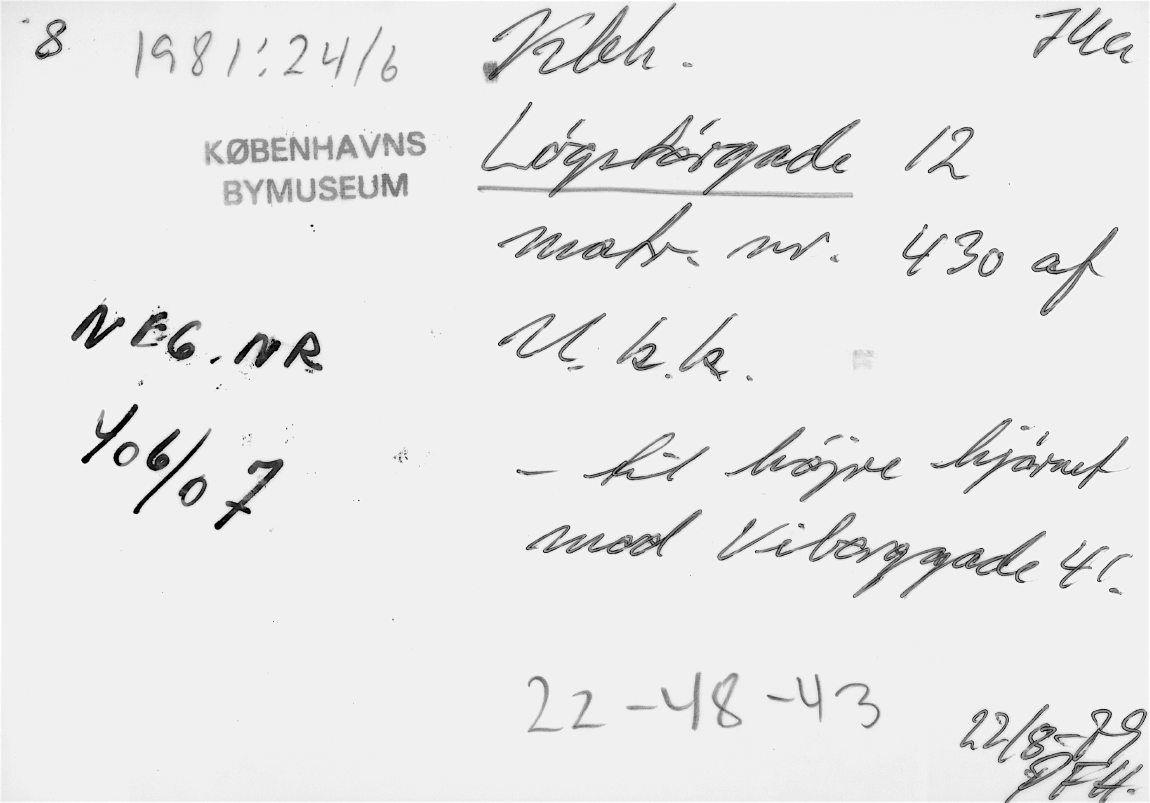 8 1981:24/6 Kbh.
KØBENHAVNS
BYMUSEUM
Løgstørgade 12
matr. nr. 430 af
U. k. k.
NEG. NR
406/07
- til højre hjørnet
mod Viborggade 41.
22-48-43
22/8-79